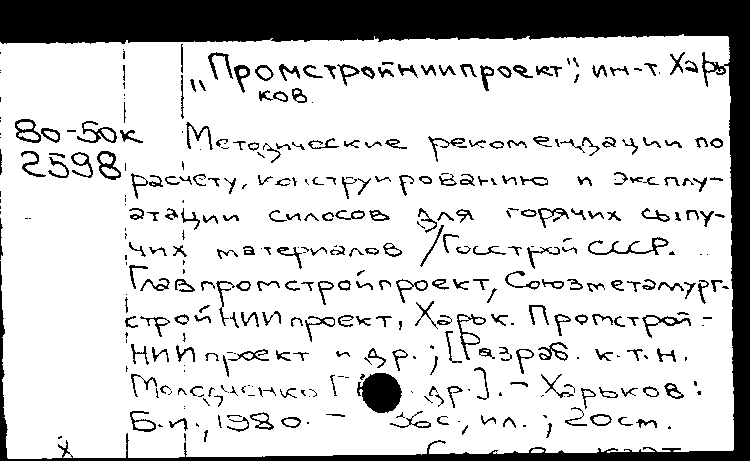 „Промстройниипроект", ин-т. Харь-
ков.
80-50к Методические рекомендации по
2598 расчету, конструированию и эксплу-
атации силосов для горячих сыпу-
чих материалов / Госстрой СССР.
Главпромстройпроект, Союзметаллург-
стройНИИпроект, Харьк. Промстрой-
НИИпроект и др.; [Разраб. к.т.н.
др.]. - Харьков:
Б.и., 1980. - 36с., ил.; 20см.